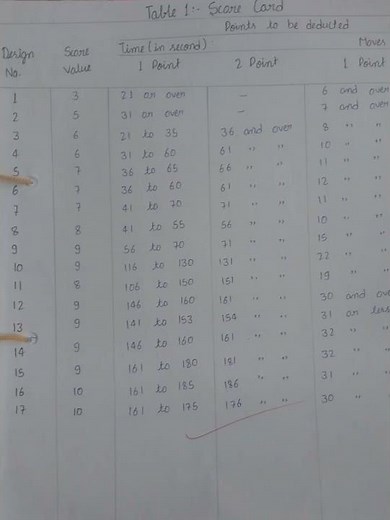 Table 1:- Score Card
Points to be deducted
Design No. Score Value Time (in second) Moves
1 Point 2 Point 1 Point
1 3 21 or over - 6 and over
2 5 31 or over - 7 and over
3 6 21 to 35 36 and over 8 " "
4 6 31 to 60 61 " " 10 " "
5 7 36 to 65 66 " " 11 " "
6 7 36 to 60 61 " " 12 " "
7 7 41 to 70 71 " " 11 " "
8 8 41 to 55 56 " " 10 " "
9 9 56 to 70 71 " " 15 " "
10 9 116 to 130 131 " " 22 " "
11 8 106 to 150 151 " " 19 "
12 9 146 to 160 161 " " 30 and ove
13 9 141 to 153 154 " " 31 or less
14 9 146 to 160 161 " " 32 " "
15 9 161 to 180 181 " " 32 "
16 10 161 to 185 186 " " 31 "
17 10 161 to 175 176 " " 30 "